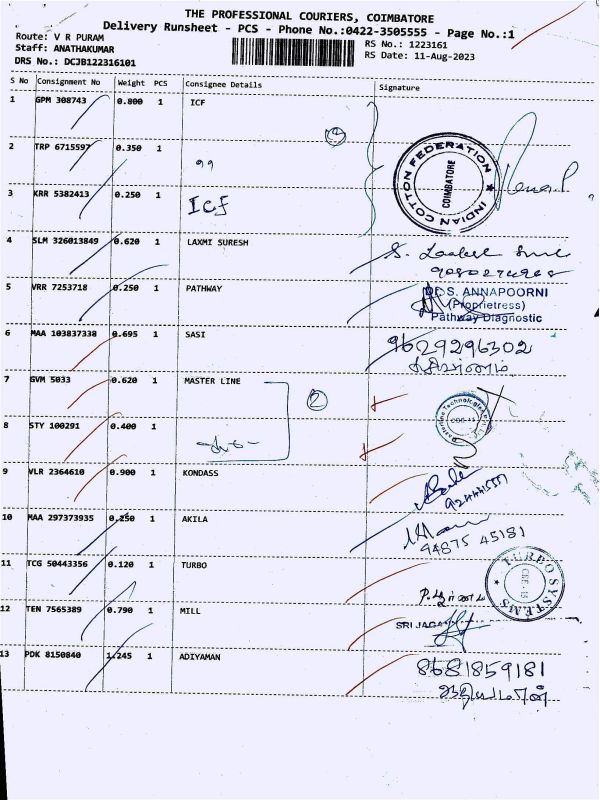 THE PROFESSIONAL COURIERS, COIMBATORE
Delivery Runsheet - PCS - Phone No.:0422-3505555 - Page No.:1
Route: V R PURAM
RS No.: 1223161
Staff: ANATHAKUMAR
RS Date: 11-Aug-2023
DRS No.: DCJB122316101
S No Consignment No Weight PCS Consignee Details Signature
1 GPM 308743 0.800 1 ICF
2 TRP 6715597 0.350 1 ,,
INDIAN COTTON FEDERATION
COIMBATORE
3 KRR 5382413 0.250 1 ICF
4 SLM 326013849 0.620 1 LAXMI SURESH
5 VRR 7253718 0.250 1 PATHWAY
S. ANNAPOORNI
(Proprietress)
Pathway Diagnostic
6 MAA 103837338 0.695 1 SASI
9629296302
7 GVM 5033 0.620 1 MASTER LINE
2
8 STY 100291 0.400 1
9 VLR 2364610 0.900 1 KONDASS
10 MAA 297373935 0.250 1 AKILA
94875 45181
11 TCG 50443356 0.120 1 TURBO
TURBO SYSTEMS
CBE-18
12 TEN 7565389 0.790 1 MILL
SRI JAGA
13 PDK 8150840 1.245 1 ADIYAMAN
8681859181